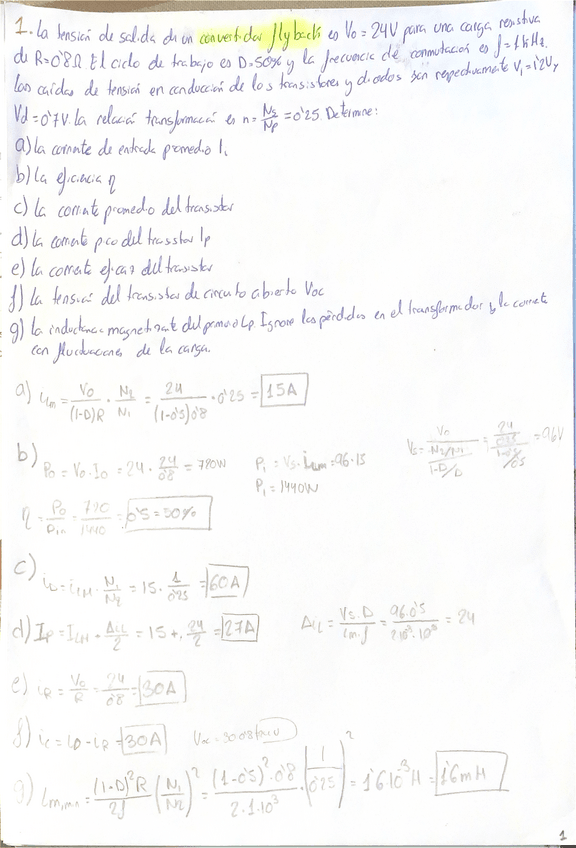 1. La tensión de salida de un convertidor flyback es Vo = 24V para una carga resistiva
de R=0'8Ω El ciclo de trabajo es D=50% y la frecuencia de conmutación es f=1kHz.
Las caídas de tensión en conducción de los transistores y diodos son respectivamente V₁=1'2V y
Vd=0'7V. La relación transformación es n = Ns/Np = 0'25. Determine:
a) La corriente de entrada promedio I₁
b) La eficiencia η
c) La corriente promedio del transistor
d) La corriente pico del transistor Ip
e) La corriente eficaz del transistor
f) La tensión del transistor de circuito abierto Voc
g) La inductancia magnetizante del primario Lp Ignore las pérdidas en el transformador y la corriente
con fluctuaciones de la carga.
a) iLm = Vo/((1-D)R) · N2/N1 = 24/((1-0'5)0'8) · 0'25 = 15A
Vs = Vo/((N2/N1)/(1-D/D)) = 96V
b) Po = Vo·Io = 24 · 24/0'8 = 720W P₁ = Vs·iLm = 96·15
P₁ = 1440W
η = Po/Pin = 720/1440 = 0'5 = 50%
c) iD = iLM · N1/N2 = 15 · 1/0'25 = 60A
d) Ip = ILM + ΔiL/2 = 15 + 24/2 = 27A ΔiL = Vs·D/(Lm·f) = 96·0'5/(2·10⁻³·10³) = 24
e) iR = Vo/R = 24/0'8 = 30A
f) ic = iD - iR = 30A Voc =
g) Lm,min = (1-D)²R/2f (N1/N2)² = (1-0'5)²·0'8/(2·1·10³) · (1/0'25)² = 1'6·10⁻³H = 1'6mH
1